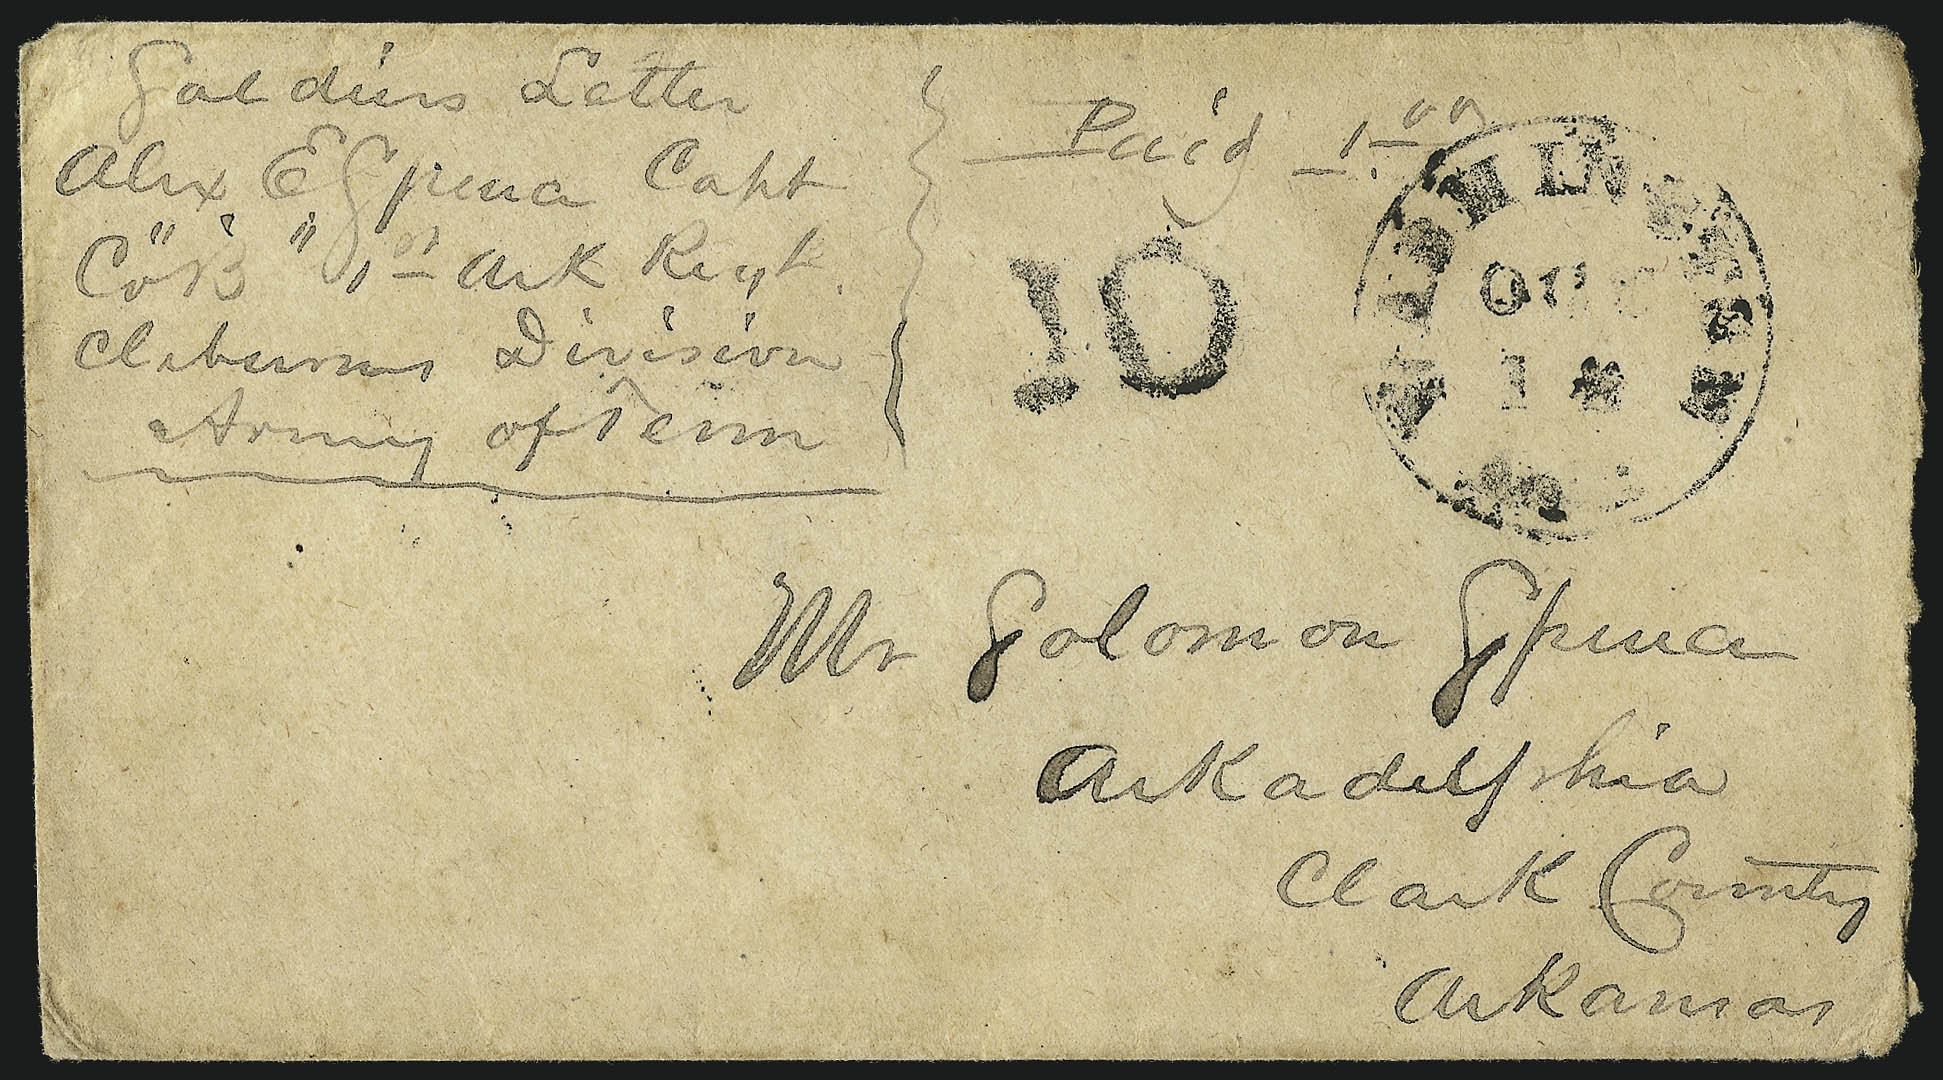 Soldiers Letter
Alex E Spence Capt
Co "B" 1st Ark Regt.
Cleburnes Division
Army of Tenn
Paid 1.00
10
WASHINGTON
1
ARK
Mr Solomon Spence
Arkadelphia
Clark County
Arkansas